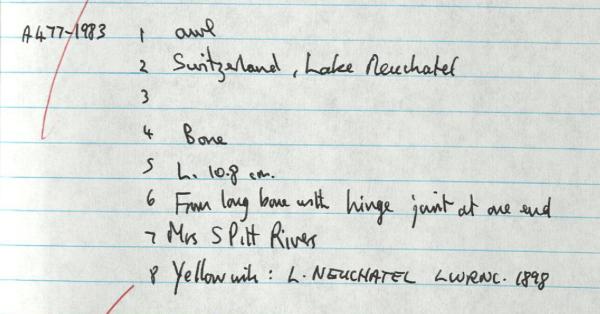 A477-1983 1 awl
2 Switzerland, Lake Neuchatel
3
4 Bone
5 L. 10.8 cm.
6 From long bone with hinge joint at one end
7 Mrs S Pitt Rivers
8 Yellow ink: L. NEUCHATEL LWRNC. 1898